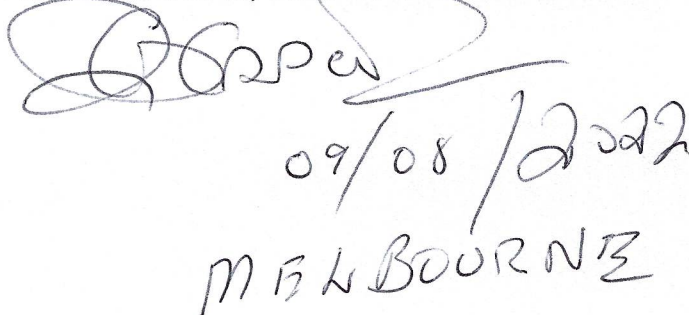 09/08/2022
MELBOURNE